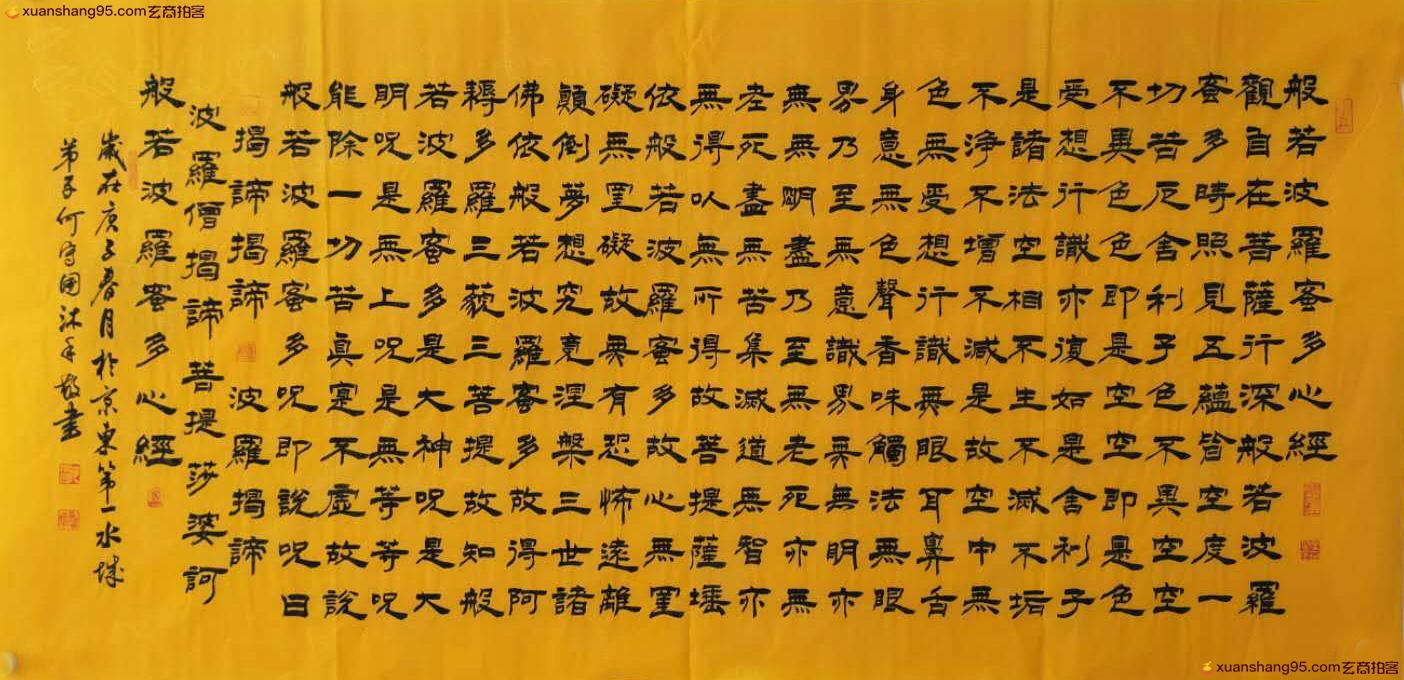 xuanshang95.com玄商拍客
般若波羅蜜多心經
觀自在菩薩行深般若波羅
蜜多時照見五蘊皆空度一
切苦厄舍利子色不異空空
不異色色即是空空即是色
受想行識亦復如是舍利子
是諸法空相不生不滅不垢
不淨不增不減是故空中無
色無受想行識無眼耳鼻舌
身意無色聲香味觸法無眼
界乃至無意識界無無明亦
無無明盡乃至無老死亦無
老死盡無苦集滅道無智亦
無得以無所得故菩提薩埵
依般若波羅蜜多故心無罣
礙無罣礙故無有恐怖遠離
顛倒夢想究竟涅槃三世諸
佛依般若波羅蜜多故得阿
耨多羅三藐三菩提故知般
若波羅蜜多是大神呪是大
明呪是無上呪是無等等呪
能除一切苦真實不虛故說
般若波羅蜜多呪即說呪曰
揭諦揭諦 波羅揭諦
波羅僧揭諦 菩提莎婆訶
般若波羅蜜多心經
歲在庚子春月於京東第一水城
弟子何守国沐手敬書
xuanshang95.com玄商拍客